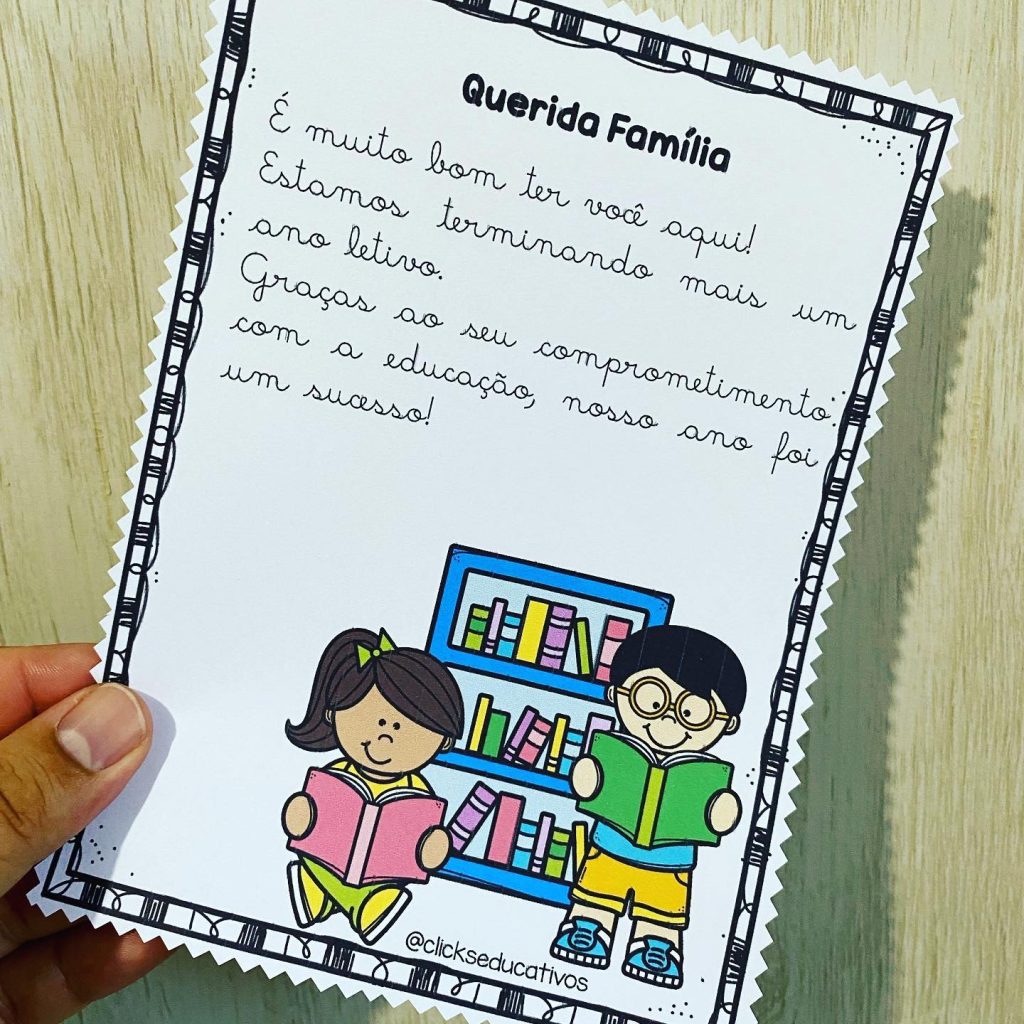 Querida Família
É muito bom ter você aqui!
Estamos terminando mais um
ano letivo.
Graças ao seu comprometimento
com a educação, nosso ano foi
um sucesso!
@clickseducativos